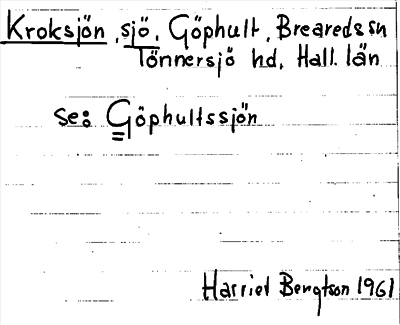 Kroksjön, sjö, Göphult, Breareds sn
Tönnersjö hd, Hall. län
se: Göphultssjön
Harriet Bengtson 1961